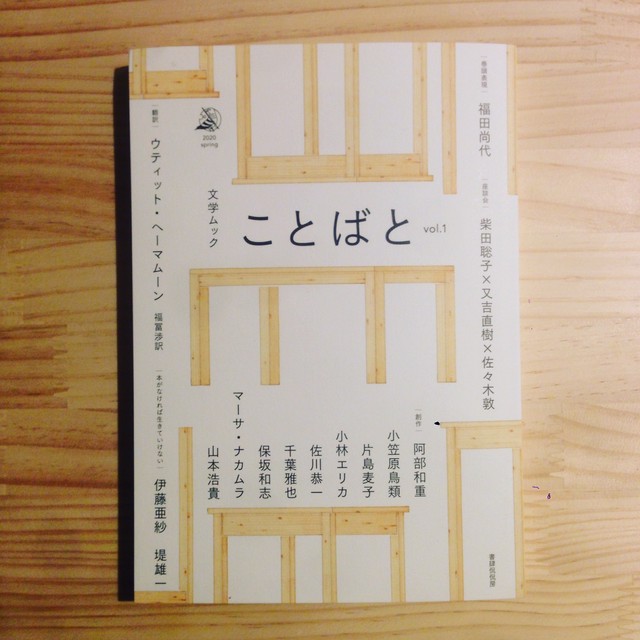 ［巻頭表現］
福田尚代
［座談会］
柴田聡子×又吉直樹×佐々木敦
2020
spring
文学ムック
ことばと
vol.1
［翻訳］
ウティット・ヘーマムーン
福冨渉訳
［本がなければ生きていけない］
伊藤亜紗
堤雄一
［創作］
阿部和重
小笠原鳥類
片島麦子
小林エリカ
佐川恭一
千葉雅也
保坂和志
マーサ・ナカムラ
山本浩貴
書肆侃侃房